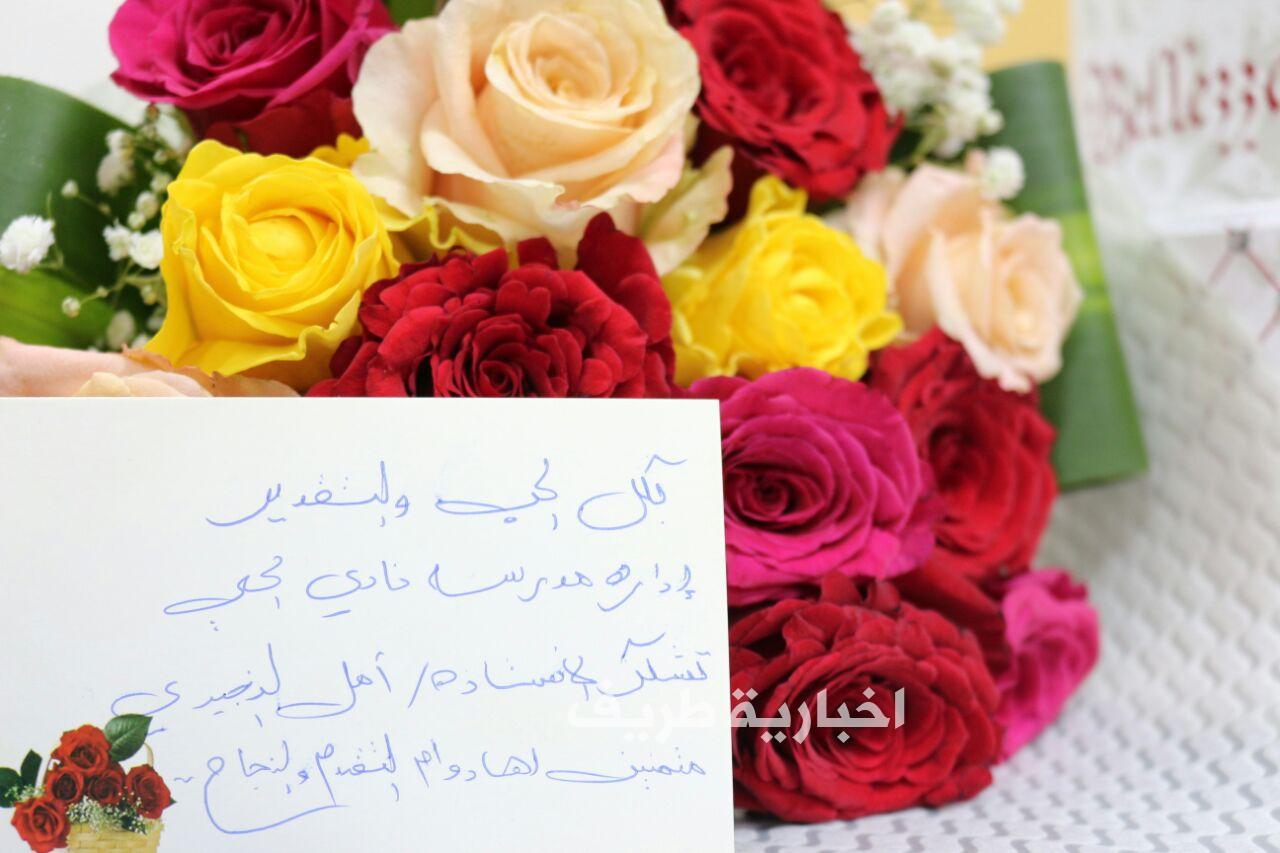 Bellezza
بكل الحب والتقدير
إداره مدرسه نادي الحي
تشكر الاستاذه/ أمل
متمنين لها دوام التقدم والنجاح
اخبارية طريف